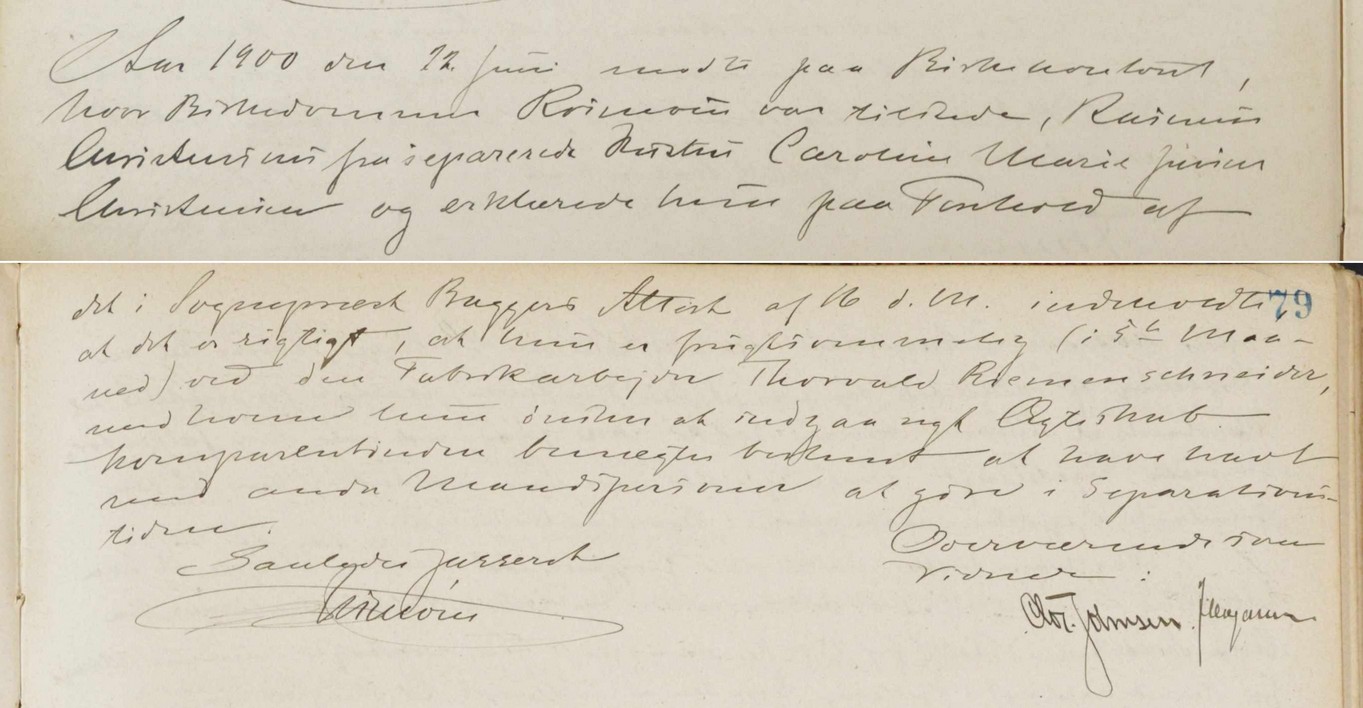 Aar 1900 den 22 Juni mødte paa Birkekontoret,
hvor Birkedommer var tilstede, Rasmus
Christensens fraseparerede Hustru Caroline Marie Jensen
Christensen og erklærede hun paa Forehold af
det i Sognepræst Baggers Attest af 16 d. M. indmeldte, 79
at det er rigtigt, at hun er frugtsommelig (i 5te Maa-
ned) ved den Fabrikarbejder Thorvald Riemenschneider,
med hvem hun ønsker at indgaa nyt Ægteskab.
Komparentinden benægter bestemt at have havt
med andre Mandspersoner at gøre i Separations-
tiden.
Saaledes passeret Overværende som
Vidner:
Chr. Johnsen.